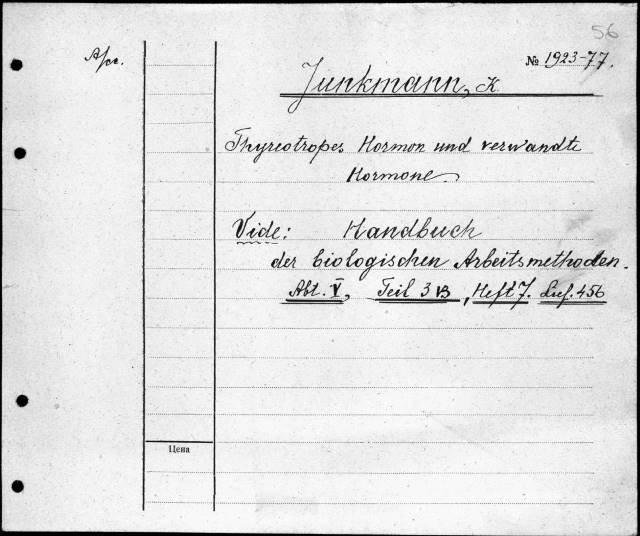 56
Apr.
№ 1923-77.
Junkmann, K.
Thyreotropes Hormon und verwandte
Hormone.
Vide: Handbuch
der biologischen Arbeitsmethoden.
Abt. V, Teil 3 B, Heft 7. Lief. 456
Цена